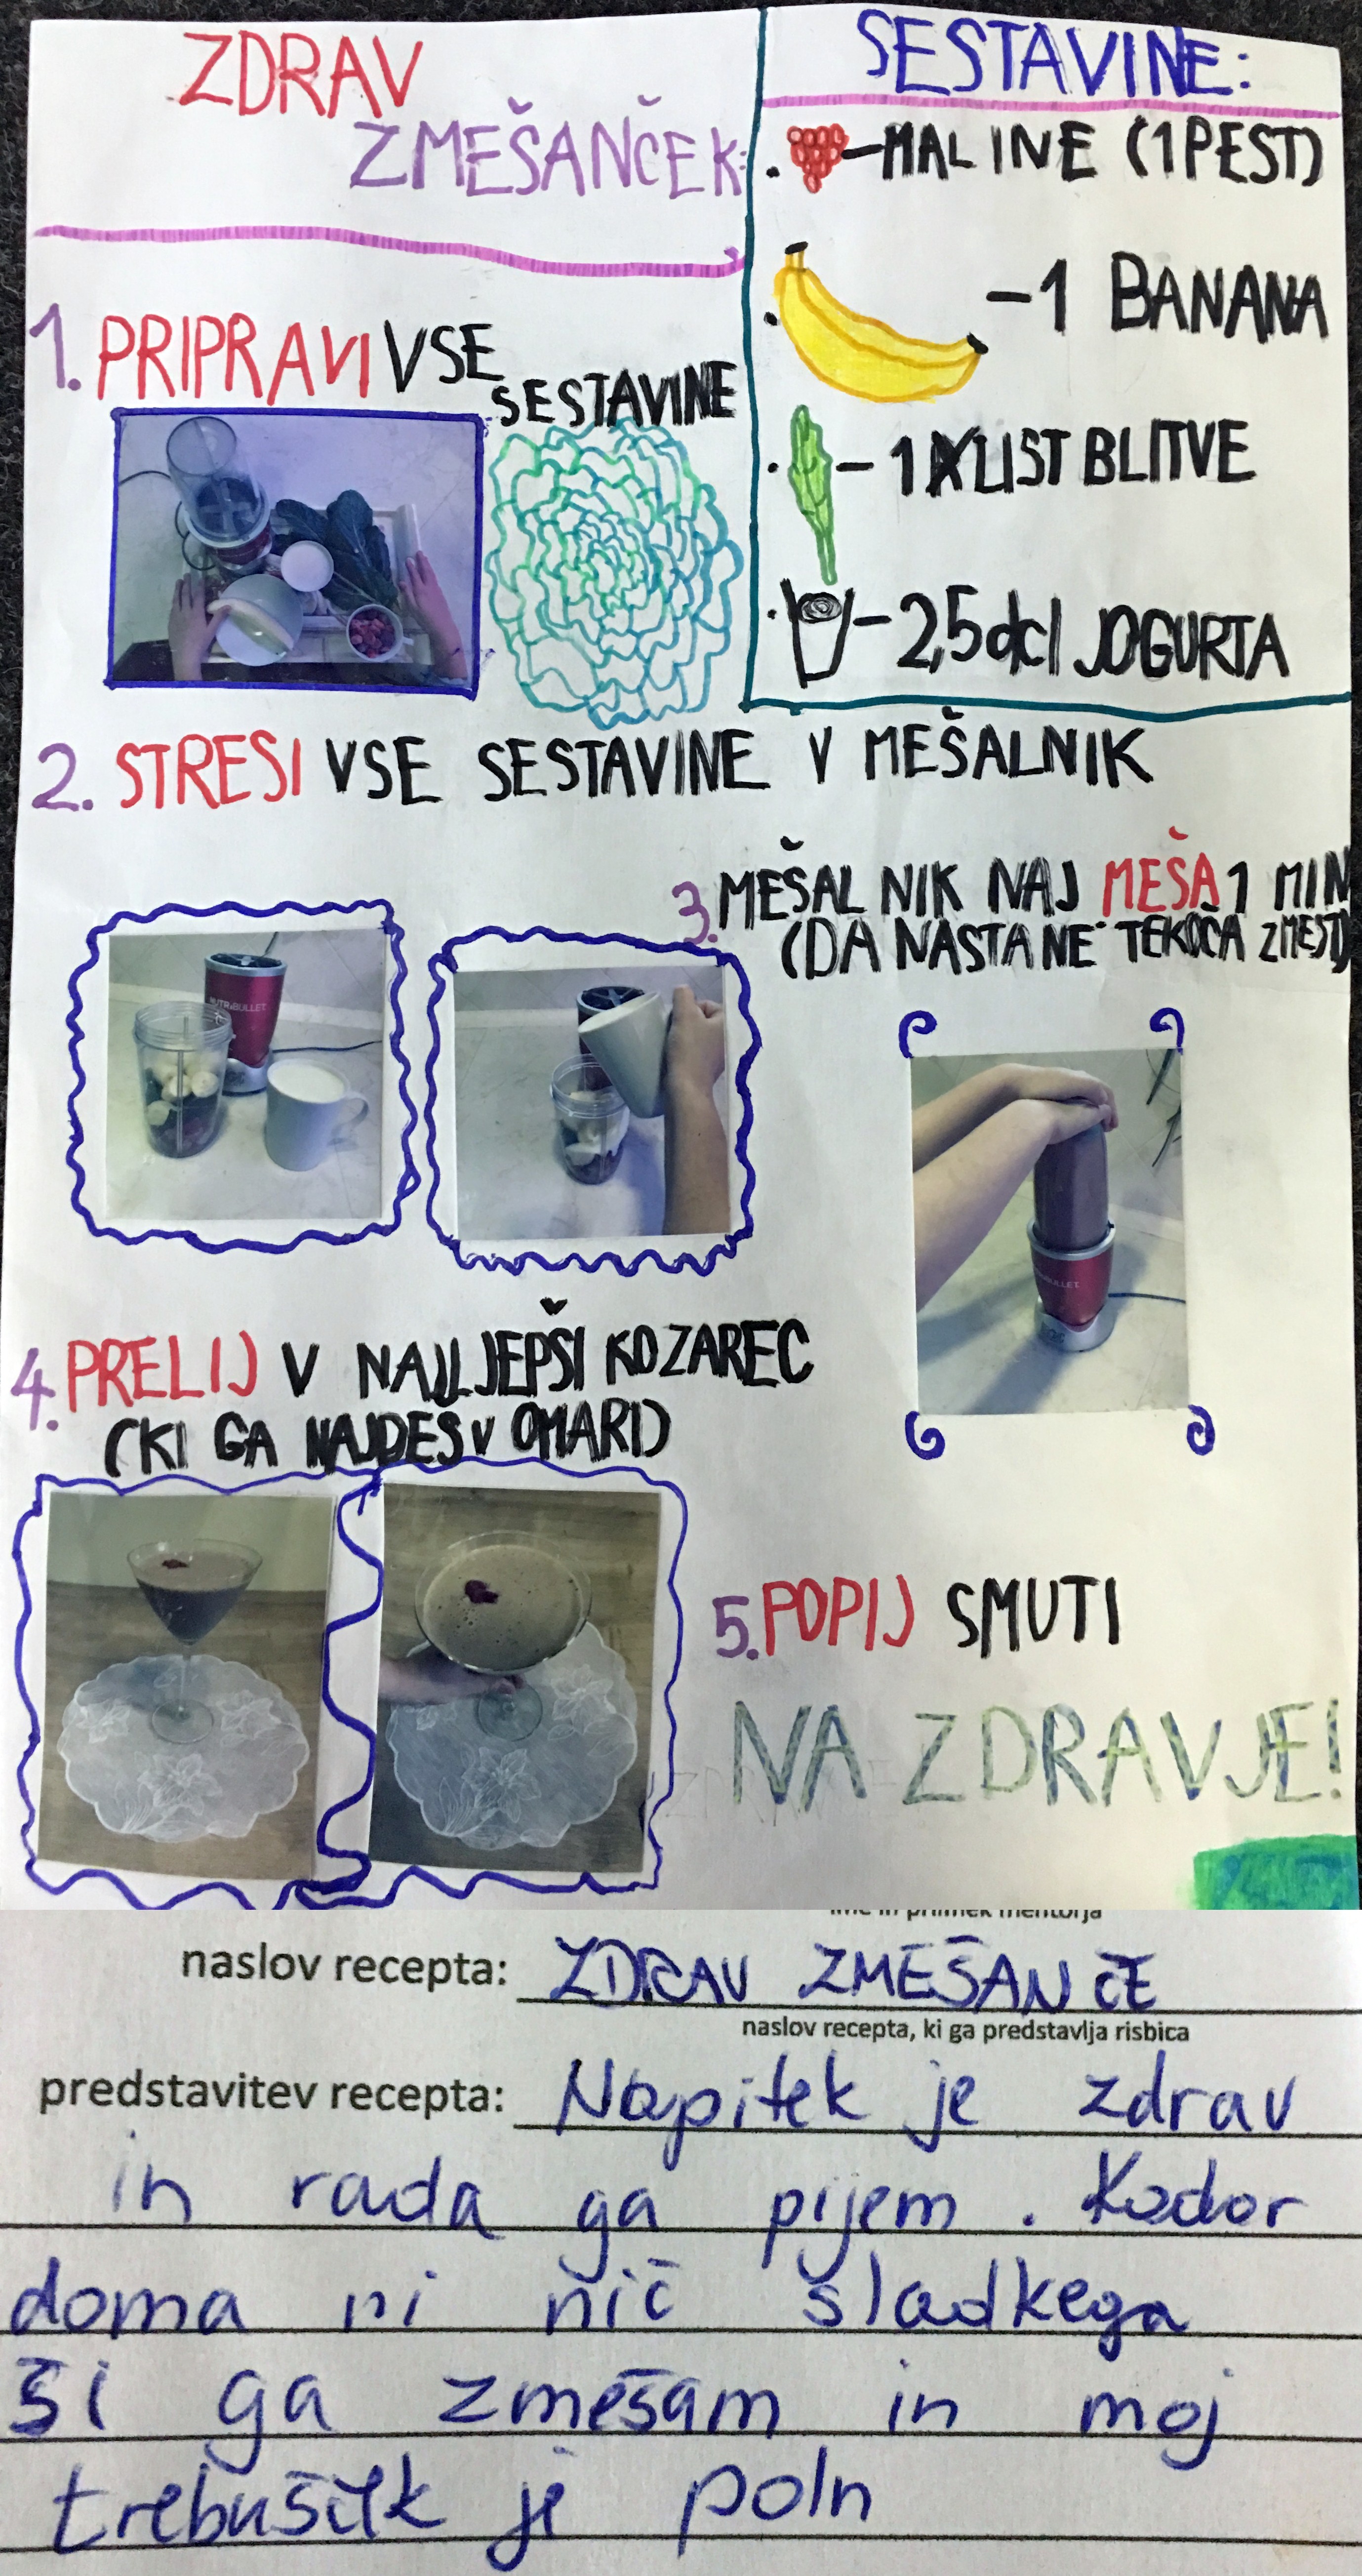 ZDRAV
ZMEŠANČEK:
SESTAVINE:
-MALINE (1 PEST)
-1 BANANA
-1 LIST BLITVE
-2,5 dcl JOGURTA
1. PRIPRAVI VSE
SESTAVINE
2. STRESI VSE SESTAVINE V MEŠALNIK
3. MEŠALNIK NAJ MEŠA 1 MIN
(DA NASTANE TEKOČA ZMES)
NUTRIBULLET
4. PRELIJ V NAJLJEPŠI KOZAREC
(KI GA NAJDEŠ V OMARI)
5. POPIJ SMUTI
NA ZDRAVJE!
ime in priimek mentorja
naslov recepta: ZDRAV ZMEŠANČE
naslov recepta, ki ga predstavlja risbica
predstavitev recepta: Napitek je zdrav
in rada ga pijem. Kadar
doma ni nič sladkega
si ga zmešam in moj
trebušček je poln